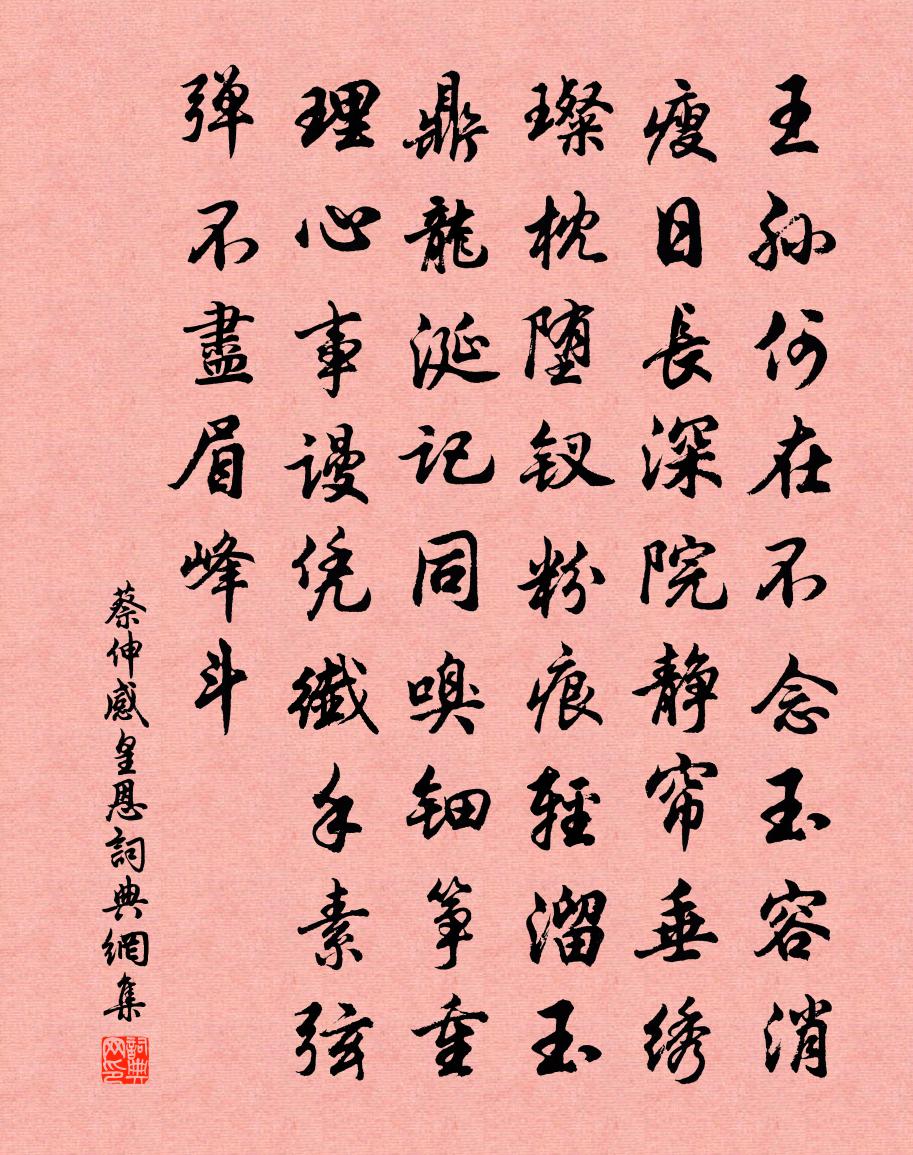 王孙何在不念玉容消
瘦日長深院静帘垂绣
璨枕堕钗粉痕輕溜玉
鼎龍涎记同嗅钿筝重
理心事谩凭纖手素弦
弹不盡眉峰斗
蔡伸感皇恩詞典網集
詞典网印